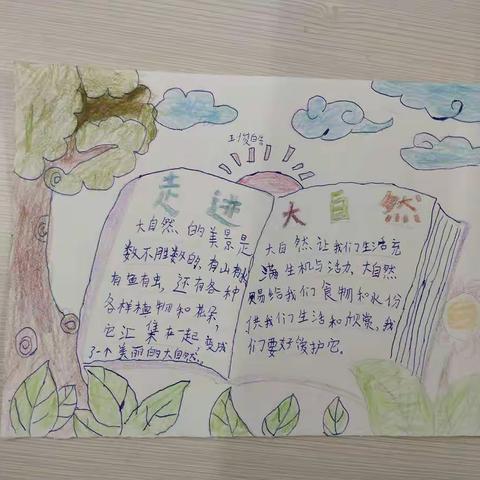 王俊皓
走进 大自然
大自然的美景是
数不胜数的，有山有水
有鱼有虫，还有各种
各样植物和花朵，
它汇集在一起，变成
了一个美丽的大自然。
大自然让我们生活充
满生机与活力，大自然
赐给我们食物和水份
供我们生活和欣赏，我
们要好保护它。